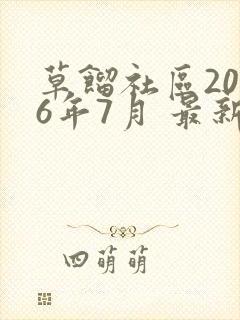 草餾社區20
6年7月 最新
四萌萌